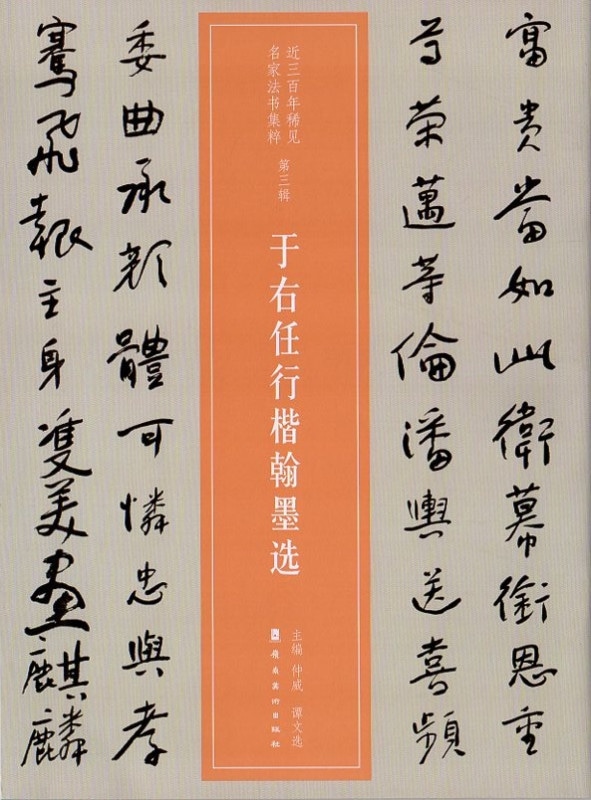 富貴當如此衛幕銜恩重
尊榮邁等倫潘輿送喜頻
近三百年稀见
名家法书集粹
第三辑
于右任行楷翰墨选
主编 仲威 谭文选
嶺南美術出版社
委曲承顏體可憐忠與孝
騫飛報主身雙美畫麒麟